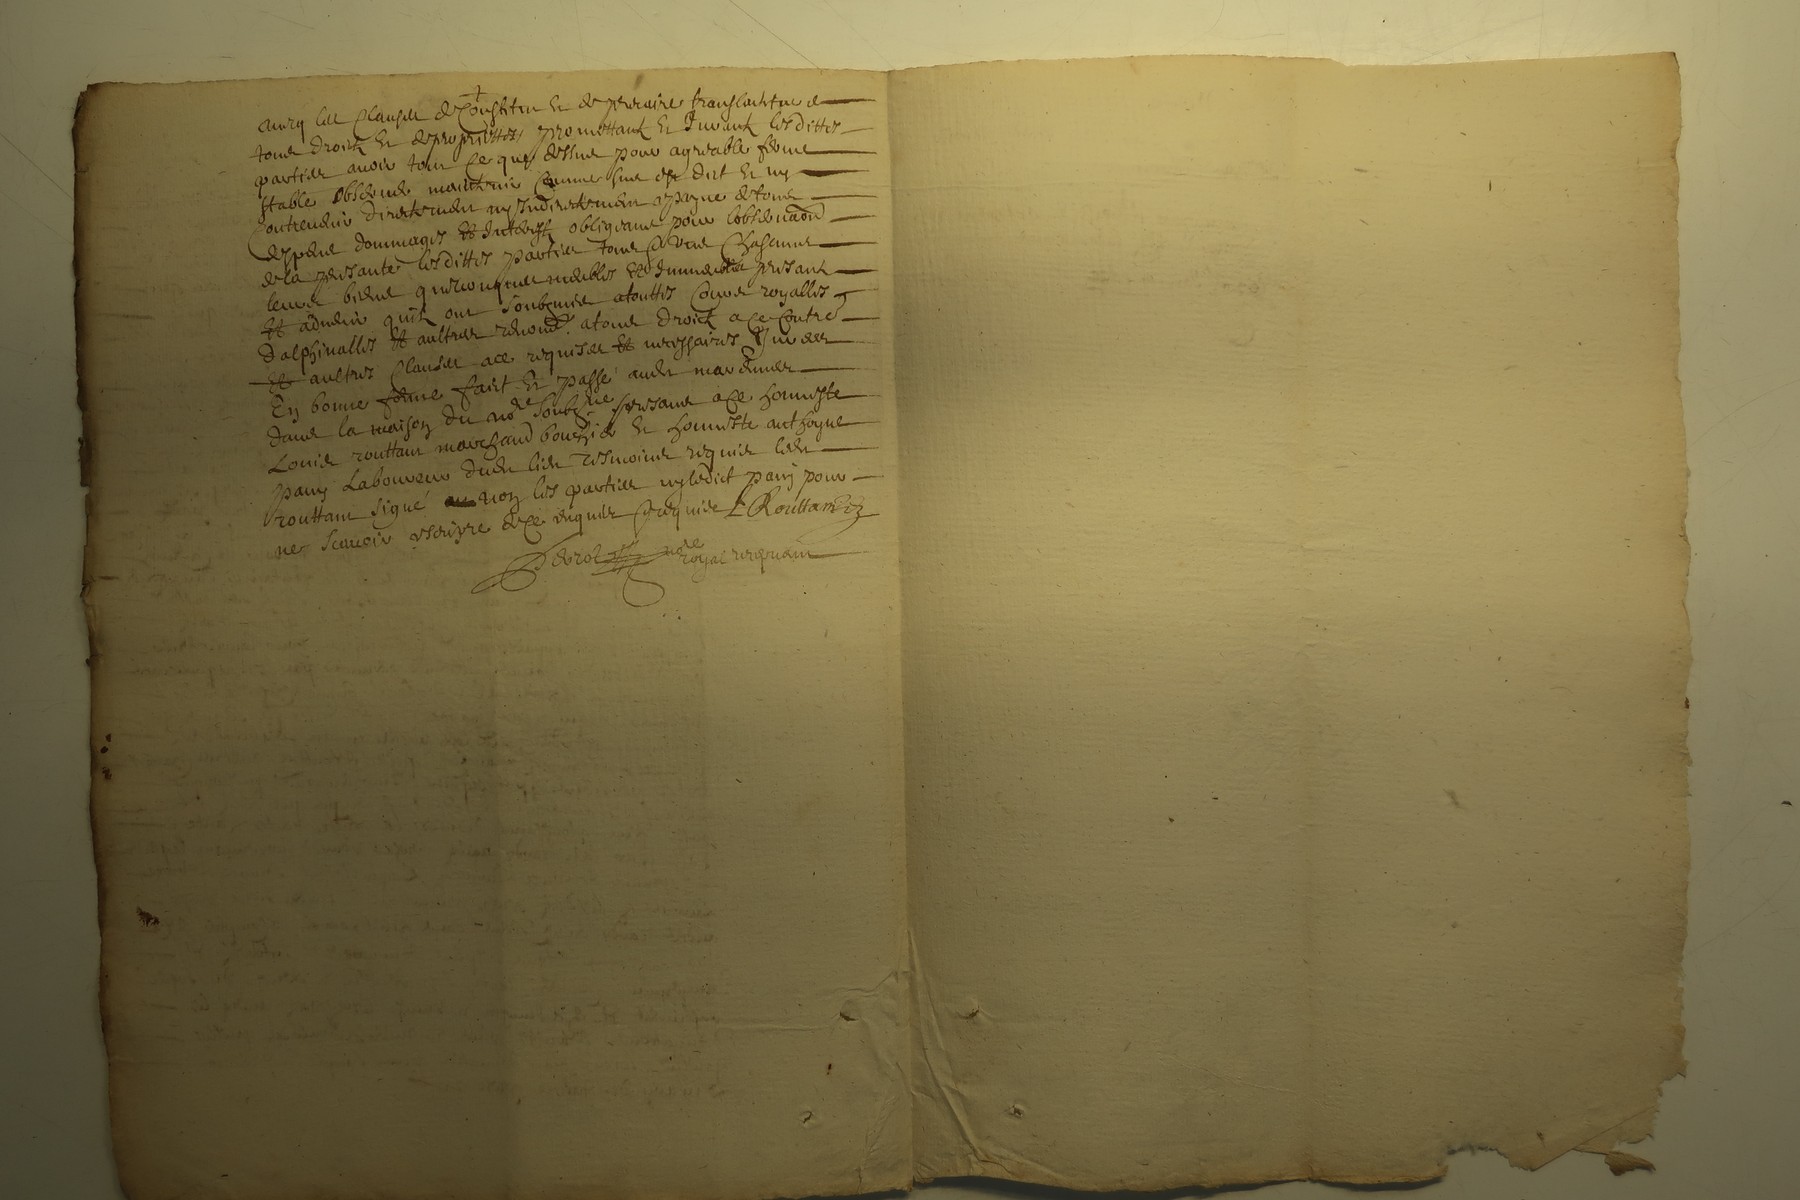 avecq les clauses de constitu et de precaire translative de
tous droits et de proprietté, promettant et jurant lesdittes
parties avoir tout ce que dessus pour agreable ferme
stable observer maintenir comme sus est dict et ny
contrevenir directement ny indirectement a peyne de tous
despens dommages et interest obligeant pour lobservaon
de la presante lesdittes parties tous chascune
leurs biens quelconques meubles et immeubles presant
et advenir quils ont soubzmis a touttes cours royalles
dalphinalles et aultres renonc. a tous droict a ce contre
et aultres clauses a ce requises et necessaires
En bonne forme faict et passé
dans la maison du nore soubzné presans a ce honneste
Louis routtam marchand bouchier et honneste anthoyne
pany Laboureur dudt lieu tesmoins requis ledt
routtam signé non les parties ny ledict pany pour
ne scavoir escripre de ce enquis et requis L Routtam
nore royal recepvant